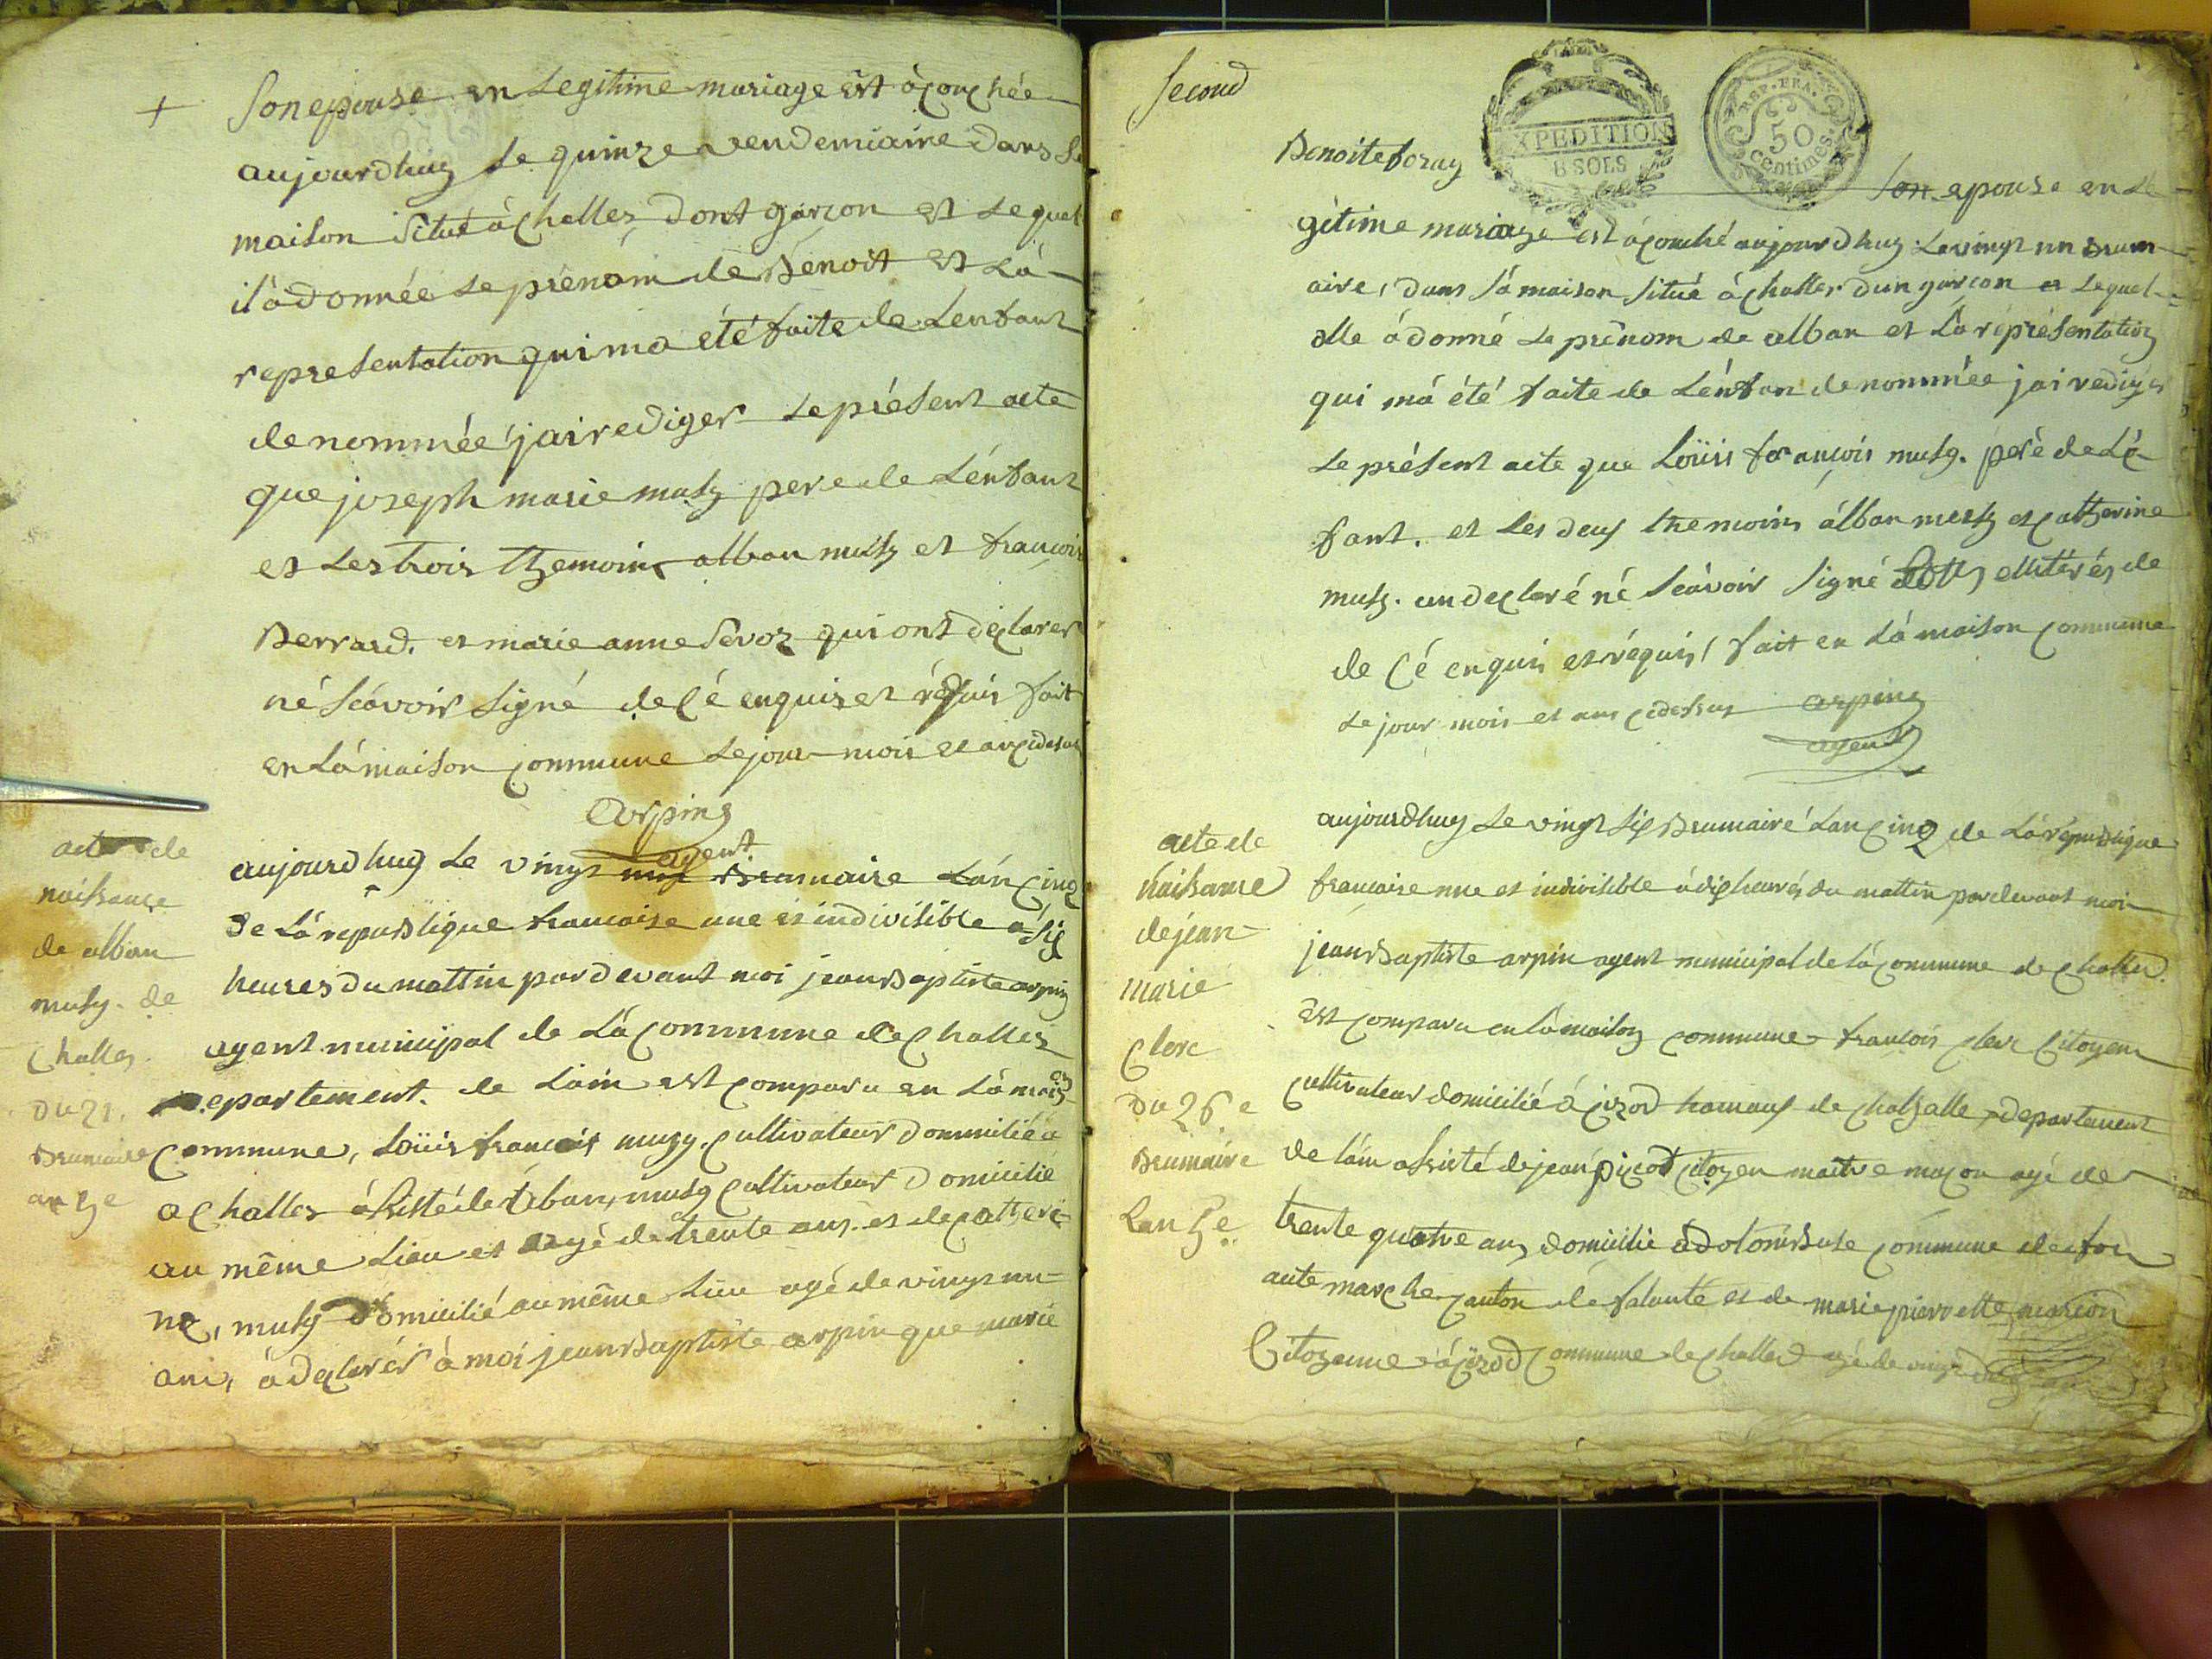 +
Son epouse en Legitime mariage est àcouchée
aujourdhuy Le quinze vendemiaire Dans Sa
maison Situé à Challes Dont garcon et Lequel
il à Donnée Le prénom de Bénoit et Là
representation qui ma été faite de Lenfant
denommée jai rediger Le présent acte
que joseph marie musy pere de Lénfant
et Les trois themoins alban musy et francois
Berrard. et marie anne Sevoz qui ont déclarer
né Scávoir Signé de Cé enquis et réquis fait
en Lá maison Commune Le jour mois et an cidesus
arpin
agent
acte de
naissance
de alban
musy. de
Challes.
Du 21.
Brumaire
an 5e
aujourdhuy Le vingt une Brumaire Lán Cinq
De Lá republique francaise une et indivisible a Six
heures du mattin pardevant moi jean Baptiste arpin
agent municipal de Lá Commune de Challes
Departement. de Lain est Comparu en Là maison
Commune, Loüis francois musy. Cultivateur Dommicilié a
a Challes àssisté de alban, musy Cultivateur Domicilié
au même Lieu et agé de trente ans. et de Catheri
ne, musy Domicilié au même Lieu agé de vingt un
ans, à Declarér à moi jean Baptiste arpin que marie
Second
XPEDITION
8 SOLS
REP. FRA.
50
Centimes.
Benoite foray Son epouse en Le
gitime mariage est àcouché aujourdhuy Le vingt un Brum
aire, Dans Sá maison Situé à Challes Dun garcon et Lequel
elle á donné Le prénom de alban et Lá réprésentation
qui má été faite de Lénfan denommée jai rediger
Le présent acte que Loüis francois musy. peré de Lén
fant. et Les deux themoins álban musy et Catherine
musy. on declaré né Scávoir Signé elliterés de
de Cé enquis et réquis, fait en Lá maison Commune
Le jour mois et ans cidessus arpin
agent
acte de
náissance
de jean
marie
Clerc
Du 26e
Brumaire
Lan 5e
aujourdhuy Le vingt Six Brumairé Lan Cinq de Lá république
francaise une et indivisible á dix heurés du mattin pardevant moi
jean Baptiste arpin agent municipal de lá Commune de Challes
est Comparu en Lá maison Commune francois Clerc Citoyen
Cultivateur domicilié á Cizod hamaux de Challes, departement
de Láin assisté de jean picod Citoyen maitre maçon agé de
trente quatre ans domicilié á dolomBuse Commune de fon
aute marche Canton de Valouté et de marie pierrette marion
Citoyenne á Cizod Commune de Challes agé de vingt